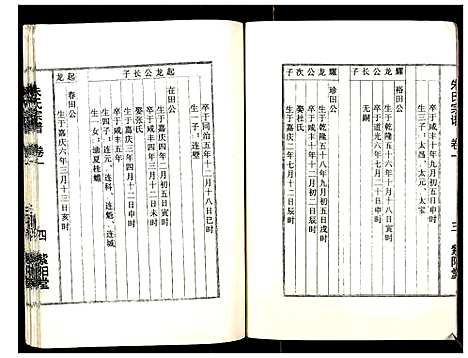 朱氏宗谱 卷一
三 紫阳堂
生三子：太昌、太元、太宝
耀龙公长子
裕田公
生于乾隆五十六年九月初五日寅时
卒于道光六年八月初六日申时
无嗣
耀龙公次子
珍田公
生于乾隆五十九年九月初五日戌时
卒于咸丰十年三月十二日辰时
娶杜氏
生于嘉庆二年七月十二日辰时
卒于同治五年十二月十八日辰时
生一子：连塈
起龙公长子
在田公
生于嘉庆四年二月初五日寅时
卒于咸丰四年三月十二日未时
娶张氏
生于嘉庆三年四月十二日申时
卒于咸丰五年
生四子：连元、连科、连魁、连城
生一女：适夏桂魁
起龙
春田公
生于嘉庆六年三月十三日亥时
朱氏宗谱 卷一
四 紫阳堂